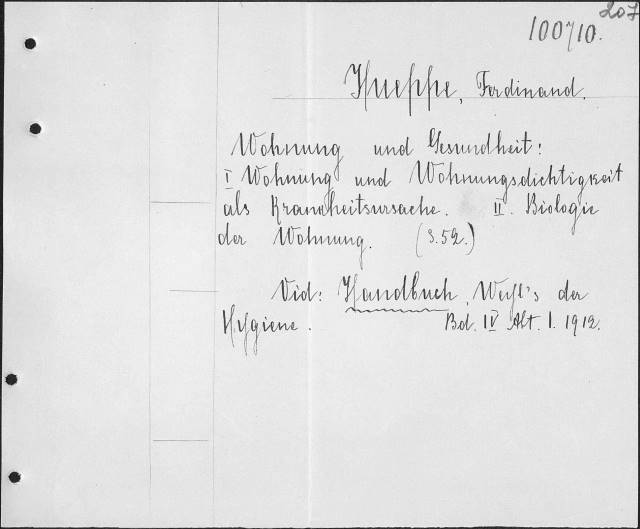 207
100710.
Hueppe, Ferdinand.
Wohnung und Gesundheit:
I Wohnung und Wohnungsdichtigkeit
als Krankheitsursache. II. Biologie
der Wohnung. (S.52.)
Vid: Handbuch, Weyl's der
Hygiene. Bd. IV Abt. I. 1912.